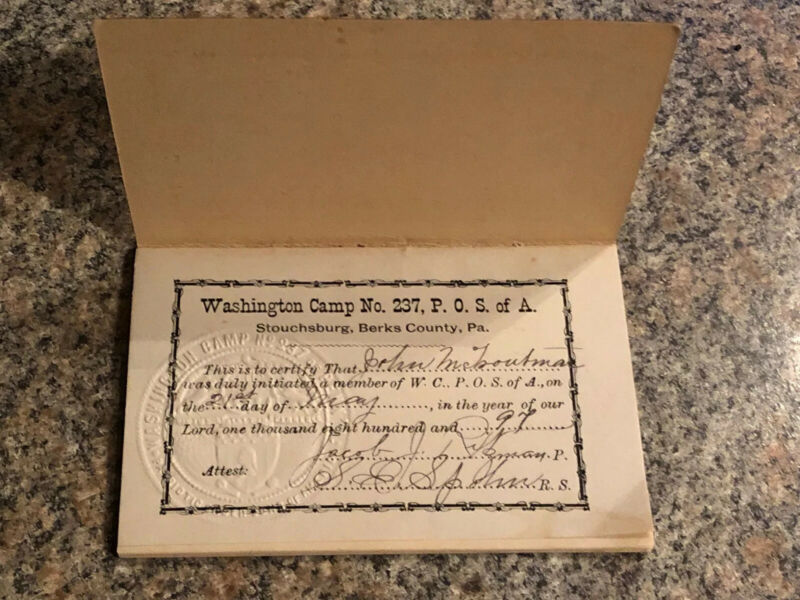 Washington Camp No. 237, P. O. S. of A.
Stouchsburg, Berks County, Pa.
This is to certify That John M. Troutman
was duly initiated a member of W. C., P. O. S. of A., on
the 21st day of May, in the year of our
Lord, one thousand eight hundred and 97
Jacob P.
Attest: S. E. Spohn R. S.
WASHINGTON CAMP No 237